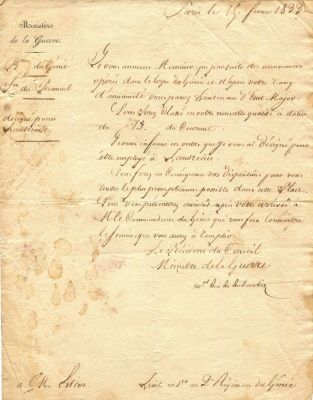 Paris le 15 février 1833
Ministère
de la Guerre.
du Génie
du Personnel
désigné pour
Landrecies
Je vous annonce Monsieur, que par suite de
opérés dans le Corps du Génie et d'après votre rang
d'ancienneté vous passez Lieutenant d'Etat Major
Vous serez classé en votre nouvelle qualité à dater
du 13 du Courant
Je vous informe en outre que je vous ai désigné pour
être employé à Landrecies
Vous ferez en Conséquence vos dispositions pour vous
rendre le plus promptement possible dans cette Place.
Vous vous présenterez aussitôt après votre arrivée à
M. le Commandant du Génie qui vous fera connaître
le Service que vous aurez à remplir
Le Président du Conseil
Ministre de la Guerre
Duc de Dalmatie
à M. Estève
Lieut. en 1er au 2e Régiment du Génie